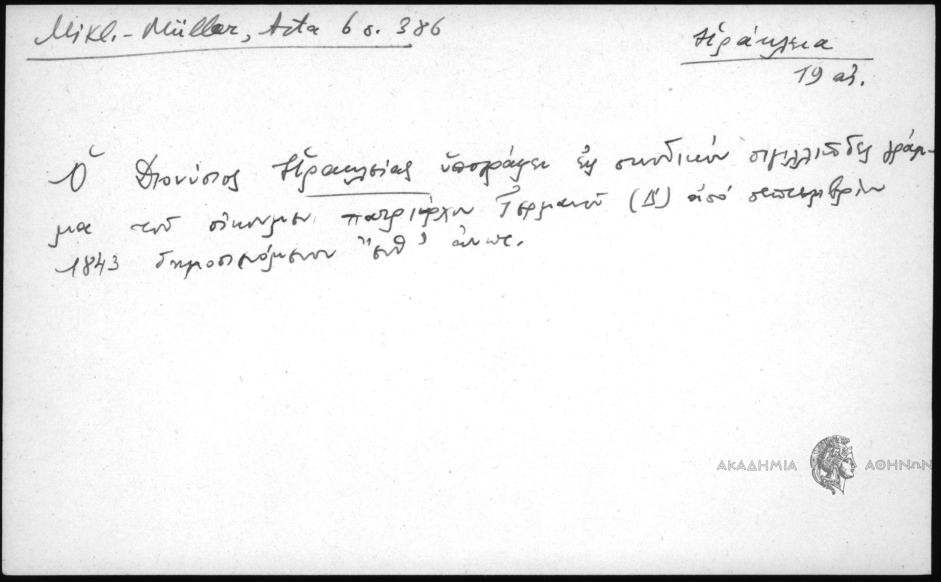 Mikl.-Müller, Acta 6 σ. 386
Ἡράκλεια
19 αἰ.
Ὁ Διονύσιος Ἡρακλείας ὑπογράφει εἰς συνοδικόν σιγιλλιῶδες γράμ-
μα τοῦ οἰκουμεν. πατριάρχου Γερμανοῦ (Δ') ἀπό σεπτεμβρίου
1843 δημοσιευόμενον ἔνθ' ἀνωτ.
ΑΚΑΔΗΜΙΑ ΑΘΗΝΩΝ